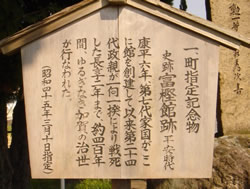 一、町指定記念物
史跡 富樫館跡 平安時代
康平六年、第七代家国がこ
に館を創建して以来第二十四
代政親が一向一揆で戦死
した長享二年まで、約四百年
間、ゆるぎなき加賀の治世
が行なわれた。
（昭和四十五年三月十日指定）